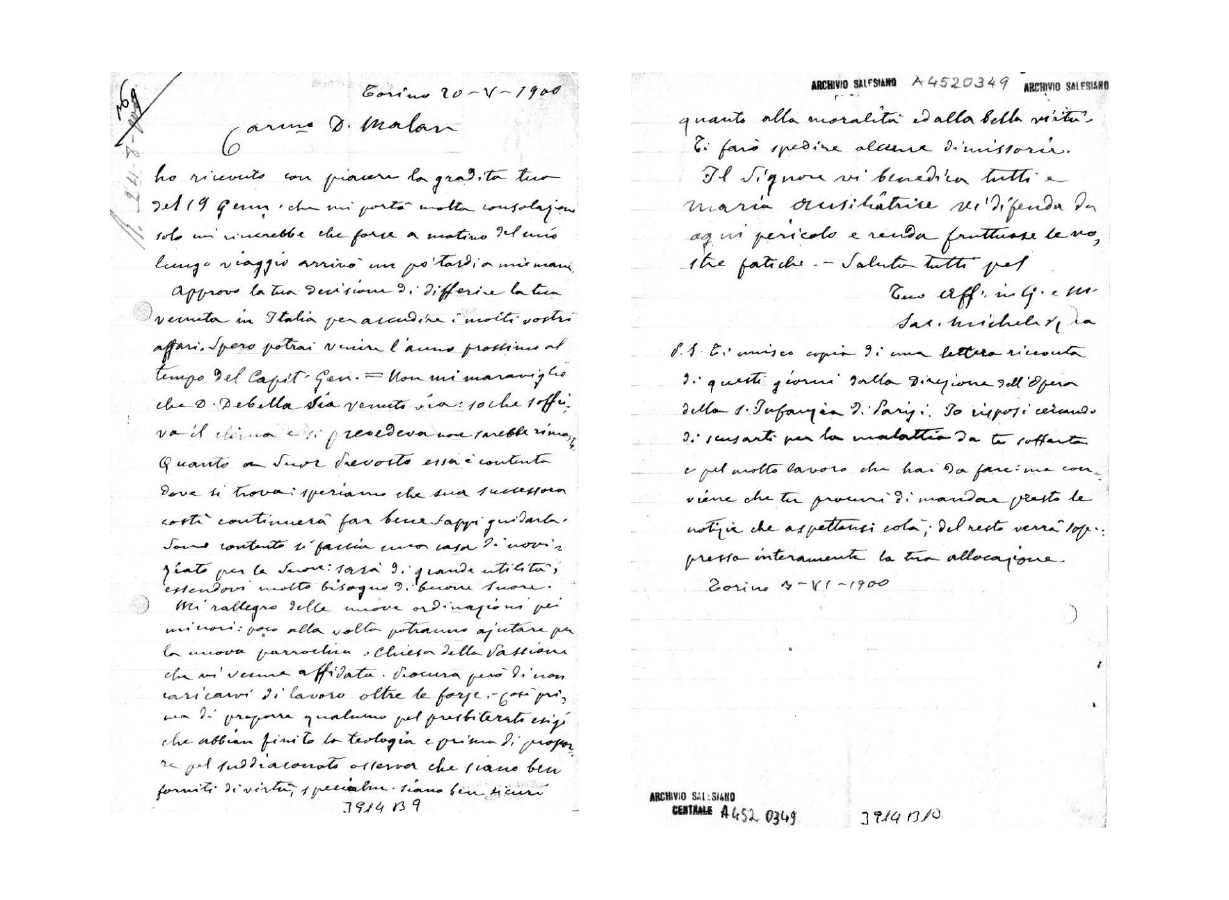 Torino 20-V-1900
Carmo D. Malan
ho ricevuto con piacere la gradita tua
del 19 Genn. che mi portò molta consolazione
solo mi rincrebbe che forse a motivo del mio
lungo viaggio arrivò un po' tardi a mie mani.
Approvo la tua decisione di differire la tua
venuta in Italia per accudire i molti vostri
affari. Spero potrai venire l'anno prossimo al
tempo del Capit. Gen. = Non mi maraviglio
che D. Debella sia venuto via: so che soffri-
va il clima e si prevedeva non sarebbe rimas
Quanto a Suor Prevosto essa è contenta
dove si trova: speriamo che sua successora
costì continuerà far bene. Sappi guidarla.
Sono contento si faccia una casa di novi-
ziato per le Suore: sarà di grande utilità,
essendovi molto bisogno di buone suore.
Mi rallegro delle nuove ordinazioni pei
minori: poco alla volta potranno ajutare per
la nuova parrochia. Chiesa della Passione
che vi venne affidata. Procura però di non
caricarvi di lavoro oltre le forze. - Così pri-
ma di proporre qualcuno pel presbiterato esigi
che abbian finito la teologia e prima di propor-
re pel suddiaconato osserva che siano ben
forniti di virtù, specialm. siano ben sicuri
3914 B 9
ARCHIVIO SALESIANO A4520349 ARCHIVIO SALESIANO
quanto alla moralità ed alla bella virtù.
Ti farò spedire alcune dimissorie.
Il Signore vi benedica tutti e
Maria Ausiliatrice vi difenda da
ogni pericolo e renda fruttuose le vo-
stre fatiche. - Saluta tutti pel
Tuo Aff. in G. e M.
Sac. Michele Rua
P.S. Ti unisco copia di una lettera ricevuta
di questi giorni dalla Direzione dell'Opera
della S. Infanzia di Parigi. Io risposi cercando
di scusarti per la malattia da te sofferta
e pel molto lavoro che hai da fare: ma con-
viene che tu procuri di mandar presto le
notizie che aspettansi colà; del resto verrà sop-
pressa interamente la tua allocazione.
Torino 3-VI-1900
ARCHIVIO SALESIANO
CENTRALE A452 0349 3914 B10